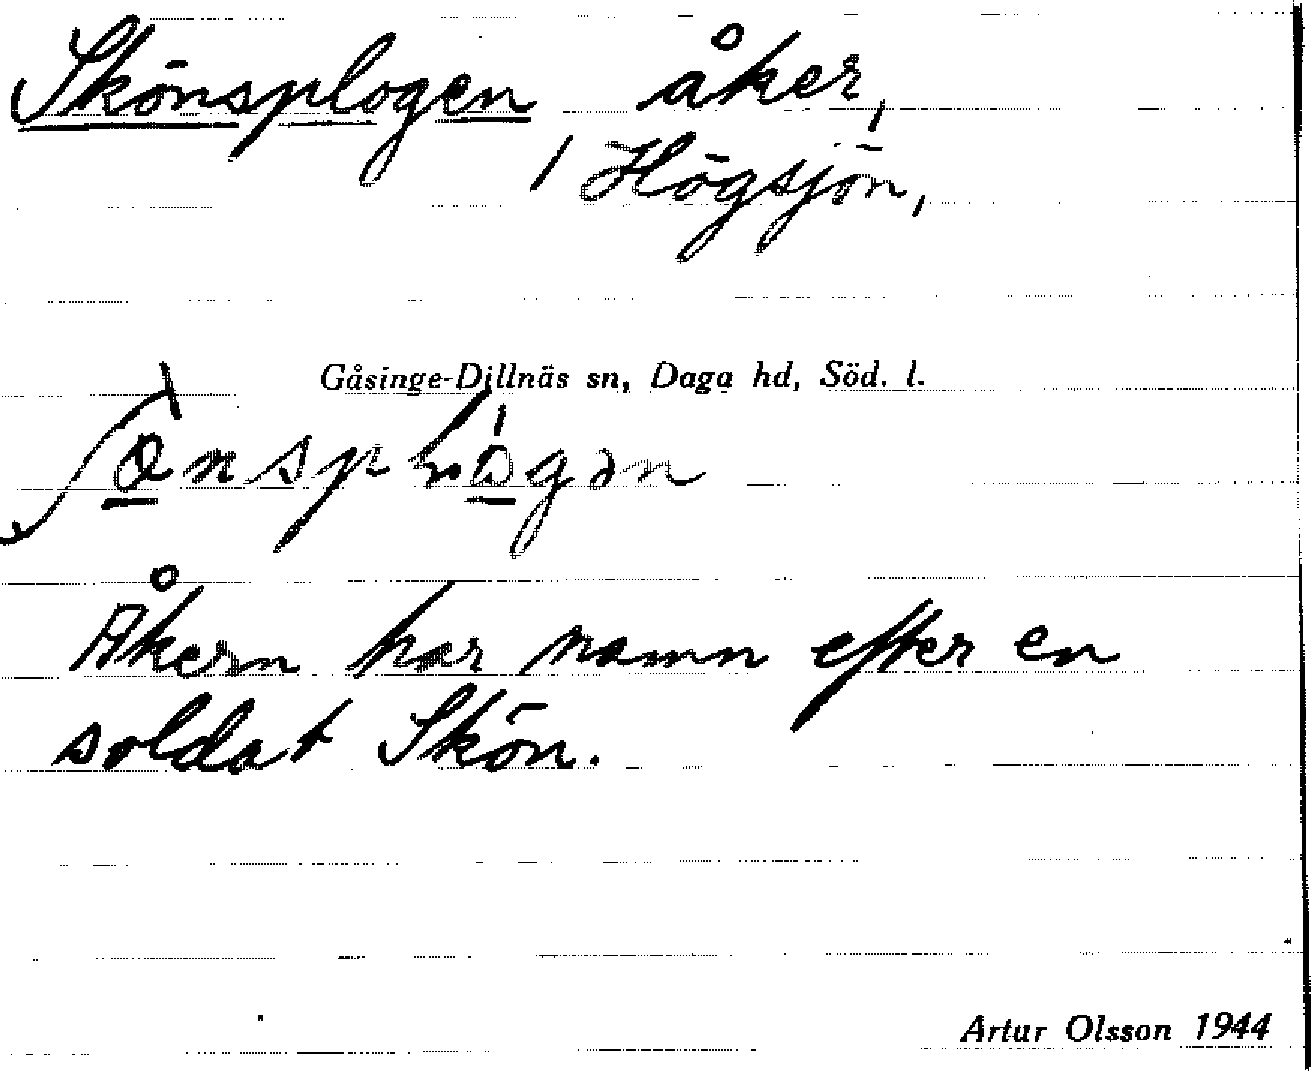 Skönsplogen åker,
1 Högsjön,
Gåsinge-Dillnäs sn, Daga hd, Söd. l.
Åkern har namn efter en
soldat Skön.
Artur Olsson 1944